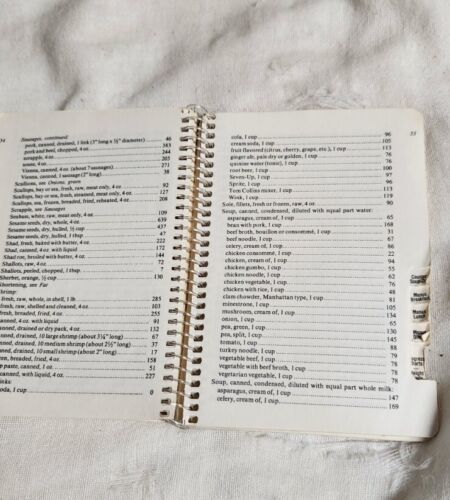 Sausages, continued:
pork, canned, drained, 1 link (3" long x ½" diameter) 46
pork and beef, chopped, 4 oz. 343
scrapple, 4 oz. 244
souse, 4 oz. 205
Vienna, canned, 4 oz. (about 7 sausages) 271
Vienna, canned, 1 sausage (2" long) 38
Scallions, see Onions, green
Scallops, bay or sea, fresh, raw, meat only, 4 oz. 92
Scallops, bay or sea, fresh, steamed, meat only, 4 oz. 127
Scallops, sea, frozen, breaded, fried, reheated, 4 oz. 208
Scrapple, see Sausages
Seabass, white, raw, meat only, 4 oz. 109
Sesame seeds, dry, whole, 4 oz. 639
Sesame seeds, dry, hulled, ½ cup 437
Sesame seeds, dry, hulled, 1 47
Shad, fresh, baked with butter, 4 oz. 222
Shad, canned, with liquid, 4 oz. 172
Shad roe, broiled with butter, 4 oz. 144
Shallots, raw, 4 oz. 72
Shallots, peeled, chopped, 1 tbsp. 7
Sherbet, orange, ½ cup 130
Shortening, see Fat
Shrimp:
fresh, raw, whole, in shell, 1 lb. 285
fresh, raw, shelled and cleaned, 4 oz. 103
fresh, breaded, fried, 4 oz. 255
canned, with liquid, 4 oz. 91
canned, drained or dry pack, 4 oz. 132
canned, drained, 10 large shrimp (about 3¼" long) 67
canned, drained, 10 medium shrimp (about 2½" long) 37
canned, drained, 10 small shrimp (about 2" long) 17
frozen, breaded, fried, 4 oz. 158
paste, canned, 4 oz. 51
canned, with liquid, 4 oz. 227
soda, 1 cup 0
cola, 1 cup 96
cream soda, 1 cup 105
fruit flavored (citrus, cherry, grape, etc.), 1 cup 113
ginger ale, pale dry or golden, 1 cup 76
quinine water (tonic), 1 cup 76
root beer, 1 cup 100
Seven-Up, 1 cup 97
Sprite, 1 cup 96
Tom Collins mixer, 1 cup 113
Wink, 1 cup 119
Sole, fillets, fresh or frozen, raw, 4 oz. 90
Soup, canned, condensed, diluted with equal part water:
asparagus, cream of, 1 cup 65
bean with pork, 1 cup 168
beef broth, bouillon or consommé, 1 cup 31
beef noodle, 1 cup 67
celery, cream of, 1 cup 86
chicken consommé, 1 cup 22
chicken, cream of, 1 cup 94
chicken gumbo, 1 cup 55
chicken noodle, 1 cup 62
chicken vegetable, 1 cup 76
chicken with rice, 1 cup 48
clam chowder, Manhattan type, 1 cup 81
minestrone, 1 cup 105
mushroom, cream of, 1 cup 134
onion, 1 cup 65
pea, green, 1 cup 130
pea, split, 1 cup 145
tomato, 1 cup 88
turkey noodle, 1 cup 79
vegetable beef, 1 cup 78
vegetable with beef broth, 1 cup 78
vegetarian vegetable, 1 cup 78
Soup, canned, condensed, diluted with equal part whole milk:
asparagus, cream of, 1 cup 147
celery, cream of, 1 cup 169